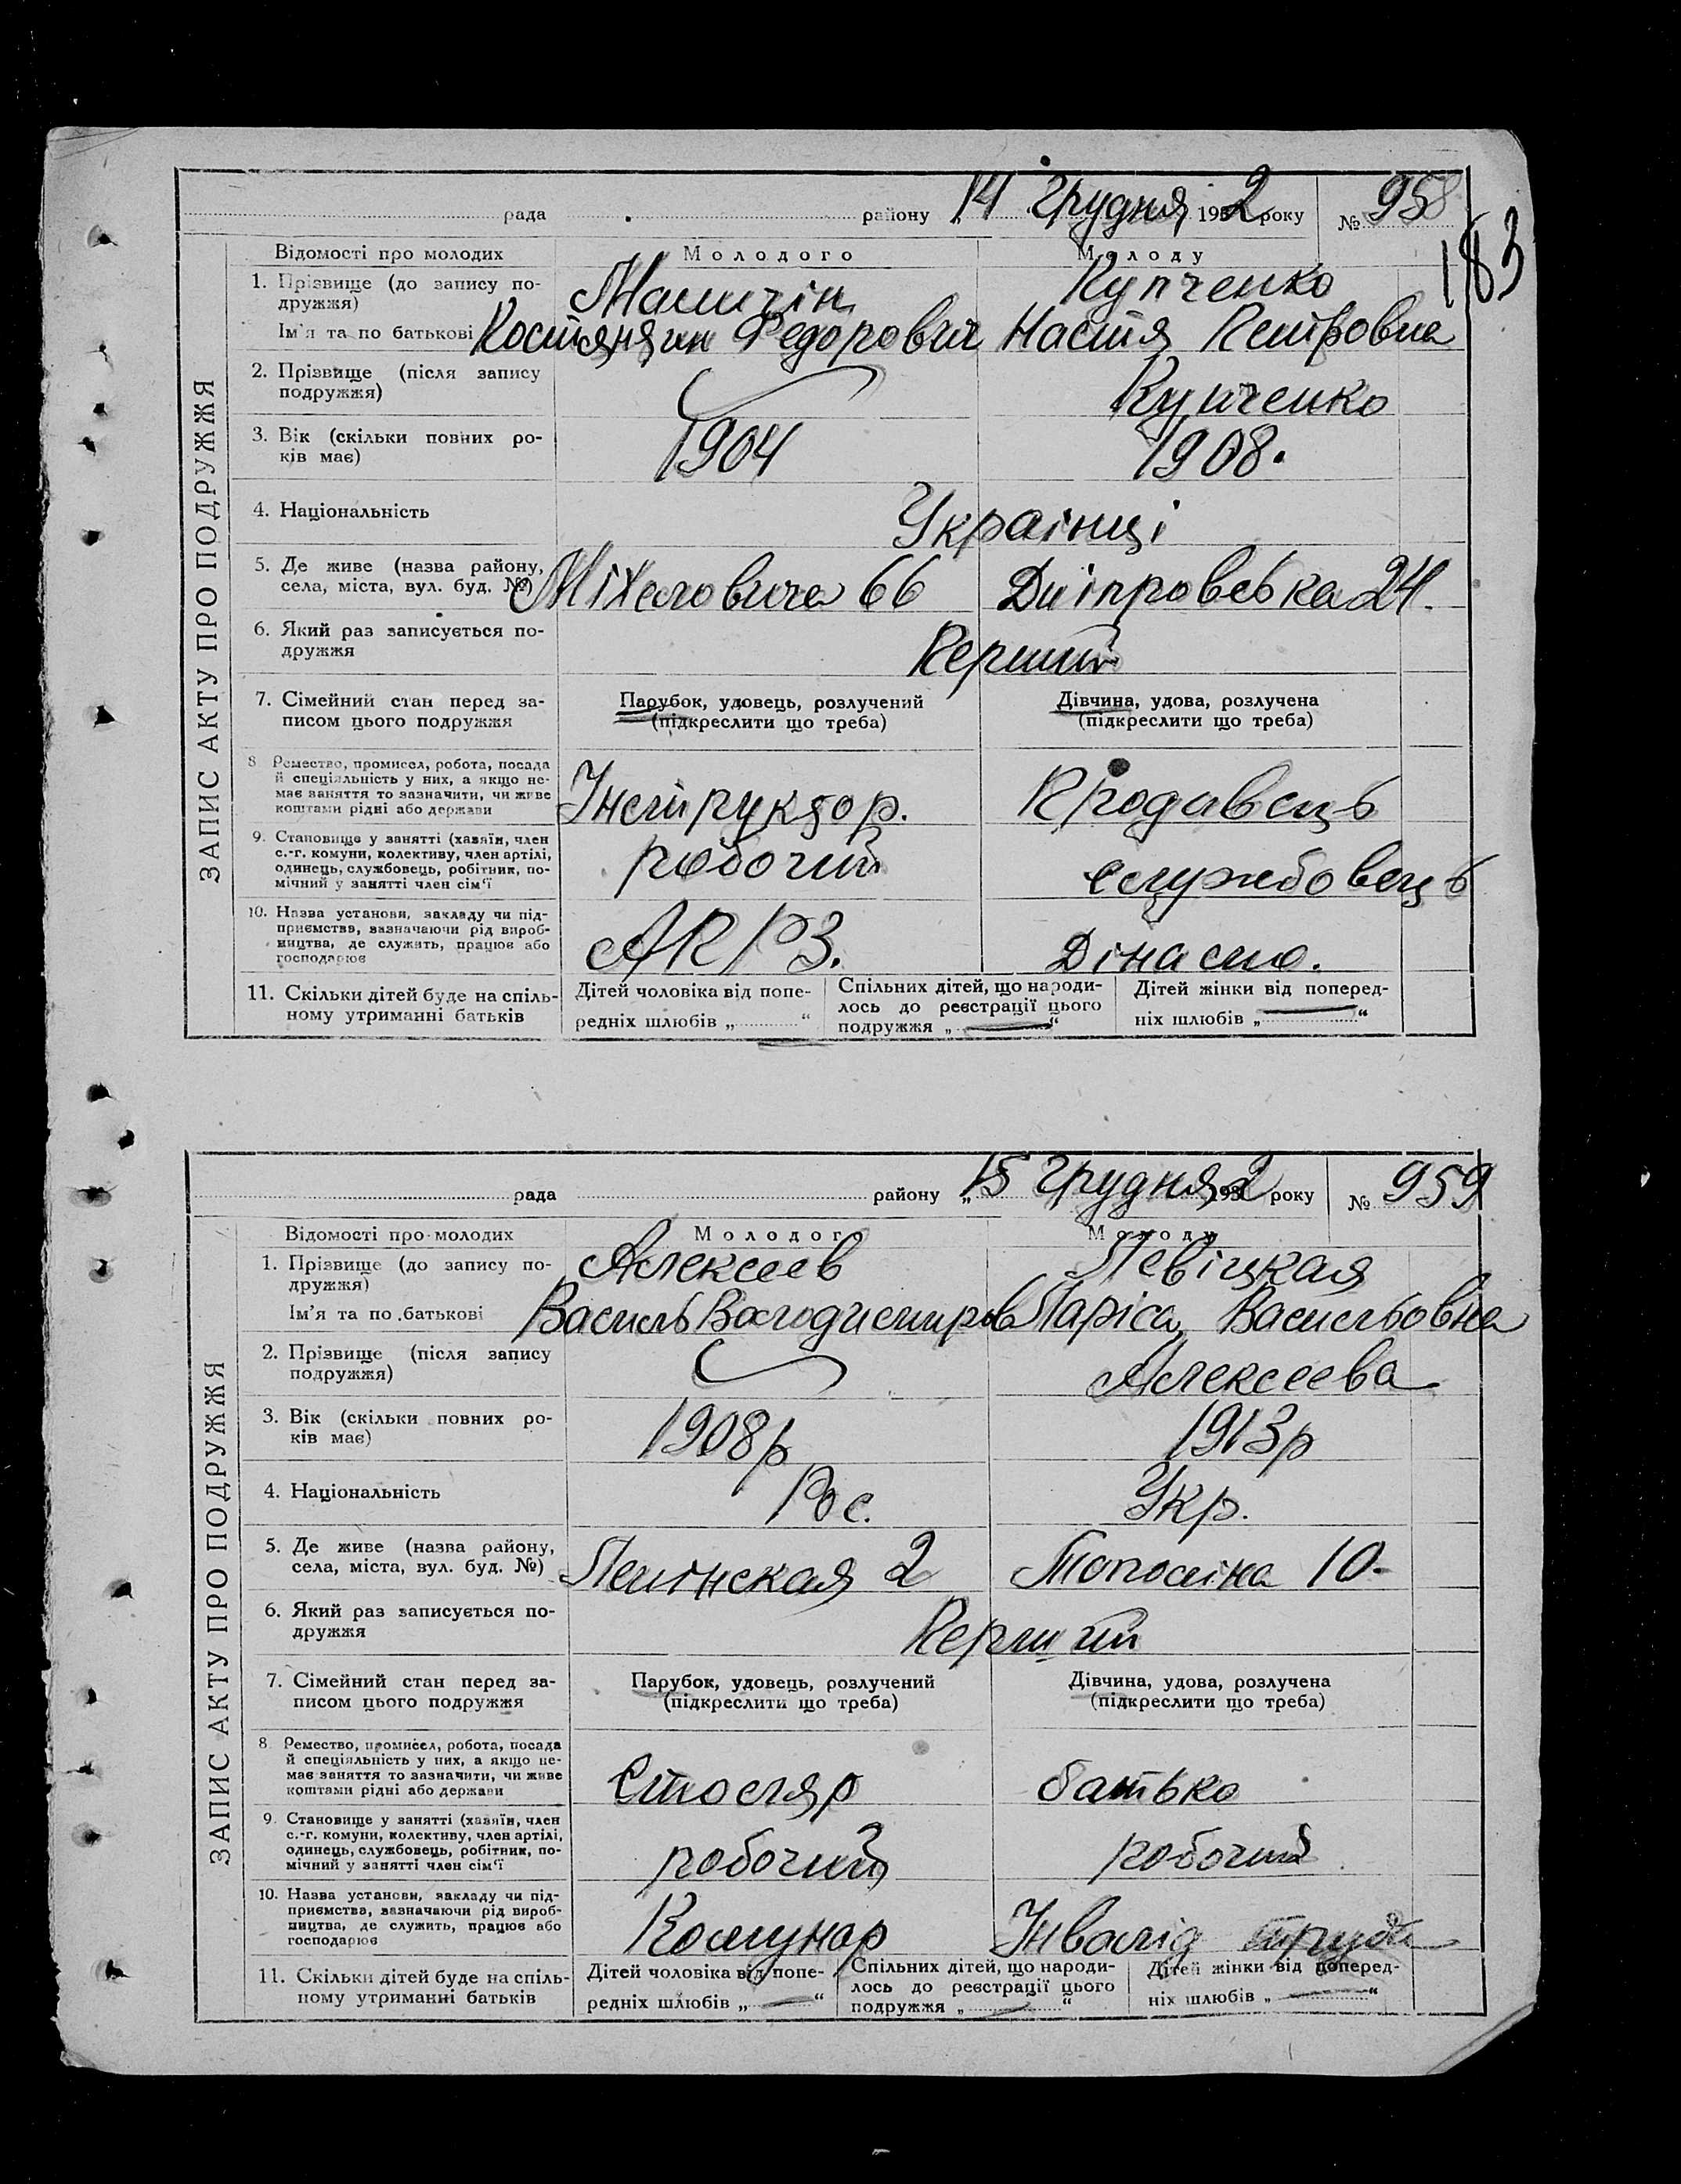 рада району 14 Грудня 1932 року № 958
183
ЗАПИС АКТУ ПРО ПОДРУЖЖЯ
Відомості про молодих Молодого Молоду
1. Прізвище (до запису по-
дружжя) Купченко
Ім'я та по батькові Костянтин Федорович Настя Петровна
2. Прізвище (після запису
подружжя) Купченко
3. Вік (скільки повних ро-
ків має) 1904 1908.
4. Національність Українці
5. Де живе (назва району,
села, міста, вул. буд. №) 66 Дніпровська 24.
6. Який раз записується по-
дружжя Перший
7. Сімейний стан перед за-
писом цього подружжя
Парубок, удовець, розлучений
(підкреслити що треба)
Дівчина, удова, розлучена
(підкреслити що треба)
8 Ремество, промисел, робота, посада
й спеціяльність у них, а якщо не-
має заняття то зазначити, чи живе
коштами рідні або держави
Інструктор. Продавець
9. Становище у занятті (хазяїн, член
с.-г. комуни, колективу, член артілі,
одинець, службовець, робітник, по-
мічний у занятті член сім'ї
робочий службовець
10. Назва установи, закладу чи під-
приємства, зазначаючи рід вироб-
ництва, де служить, працює або
господарює
АКРЗ.
11. Скільки дітей буде на спіль-
ному утриманні батьків
Дітей чоловіка від попе-
редніх шлюбів „ “
Спільних дітей, що народи-
лось до реєстрації цього
подружжя „ — “
Дітей жінки від поперед-
ніх шлюбів „ — “
рада району „15 Грудня 1932 року № 959
ЗАПИС АКТУ ПРО ПОДРУЖЖЯ
Відомості про молодих Молодого Молоду
1. Прізвище (до запису по-
дружжя) Алексеев Левіцкая
Ім'я та по батькові Василь Володимиров Ларіса Васильовна
2. Прізвище (після запису
подружжя) Алексеева
3. Вік (скільки повних ро-
ків має) 1908р 1913р
4. Національність Рос. Укр.
5. Де живе (назва району,
села, міста, вул. буд. №) Ленінская 2 10-
6. Який раз записується по-
дружжя Перший
7. Сімейний стан перед за-
писом цього подружжя
Парубок, удовець, розлучений
(підкреслити що треба)
Дівчина, удова, розлучена
(підкреслити що треба)
8 Ремество, промисел, робота, посада
й спеціяльність у них, а якщо не-
має заняття то зазначити, чи живе
коштами рідні або держави
Столяр батько
9. Становище у занятті (хазяїн, член
с.-г. комуни, колективу, член артілі,
одинець, службовець, робітник, по-
мічний у занятті член сім'ї
робочий робочий
10. Назва установи, закладу чи під-
приємства, зазначаючи рід вироб-
ництва, де служить, працює або
господарює
Комунар Інвалід труда
11. Скільки дітей буде на спіль-
ному утриманні батьків
Дітей чоловіка від попе-
редніх шлюбів „ — “
Спільних дітей, що народи-
лось до реєстрації цього
подружжя „ — “
Дітей жінки від поперед-
ніх шлюбів „ — “